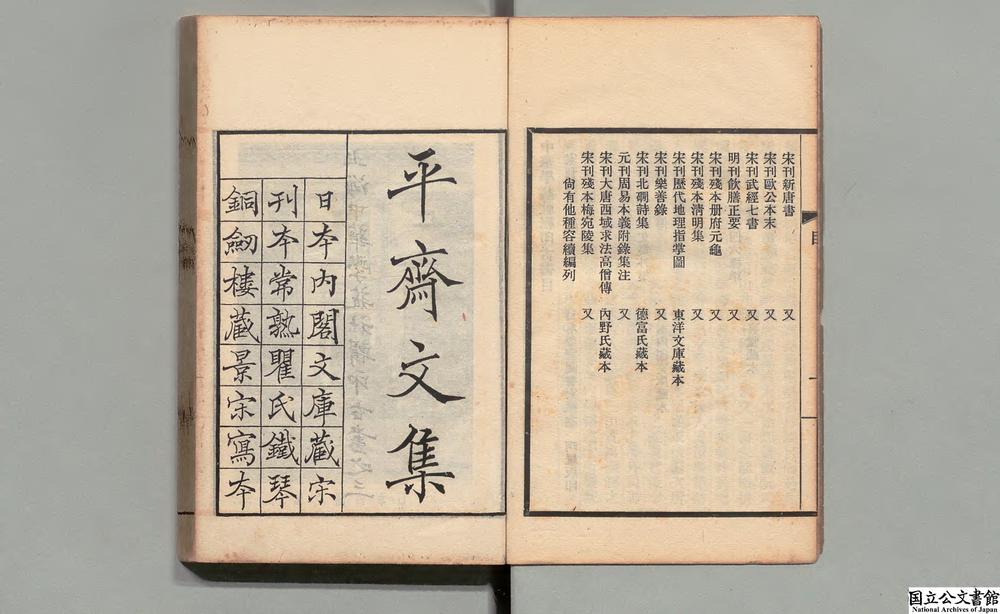 宋刊新唐書　又
宋刊歐公本末　又
宋刊武經七書　又
明刊飲膳正要　又
宋刊殘本册府元龜　又
宋刊殘本清明集　又
宋刊歷代地理指掌圖　東洋文庫藏本
宋刊樂善錄　又
宋刊北磵詩集　德富氏藏本
元刊周易本義附錄集注　又
宋刊大唐西域求法高僧傳　內野氏藏本
宋刊殘本梅宛陵集　又
尙有他種容續編列
平齋文集
日本內閣文庫藏宋
刊本常熟瞿氏鐵琴
銅劒樓藏景宋寫本
国立公文書館
National Archives of Japan